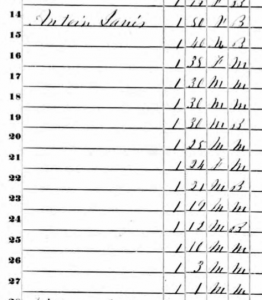 14 1 50 F B
15 1 40 M B
16 1 38 F M
17 1 36 M M
18 1 30 M M
19 1 30 M B
20 1 25 M M
21 1 24 F M
22 1 21 M B
23 1 19 M M
24 1 12 M B
25 1 10 M M
26 1 3 M M
27 1 1 M M